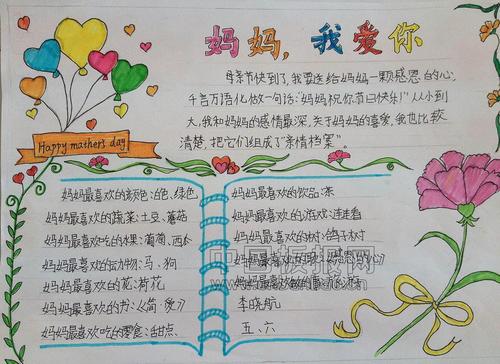 妈妈，我爱你
母亲节快到了，我要送给妈妈一颗感恩的心，
千言万语化做一句话："妈妈祝你节日快乐！"从小到
大，我和妈妈的感情最深，关于妈妈的喜爱，我也比较
清楚，把它们组成了"亲情档案"。
Happy mother's day
妈妈最喜欢的颜色：白色、绿色
妈妈最喜欢的蔬菜：土豆、蘑菇
妈妈最喜欢吃的水果：葡萄、西瓜
妈妈最喜欢的动物：马、狗
妈妈最喜欢的花：荷花
妈妈最喜欢的书：《简·爱》
妈妈最喜欢吃的零食：甜点
妈妈最喜欢的饮品：茶
妈妈最喜欢的游戏：连连看
妈妈最喜欢的树：鸽子树
妈妈最喜欢的歌：
妈妈最喜欢做的事：
李晓航
五、六
中国板报网